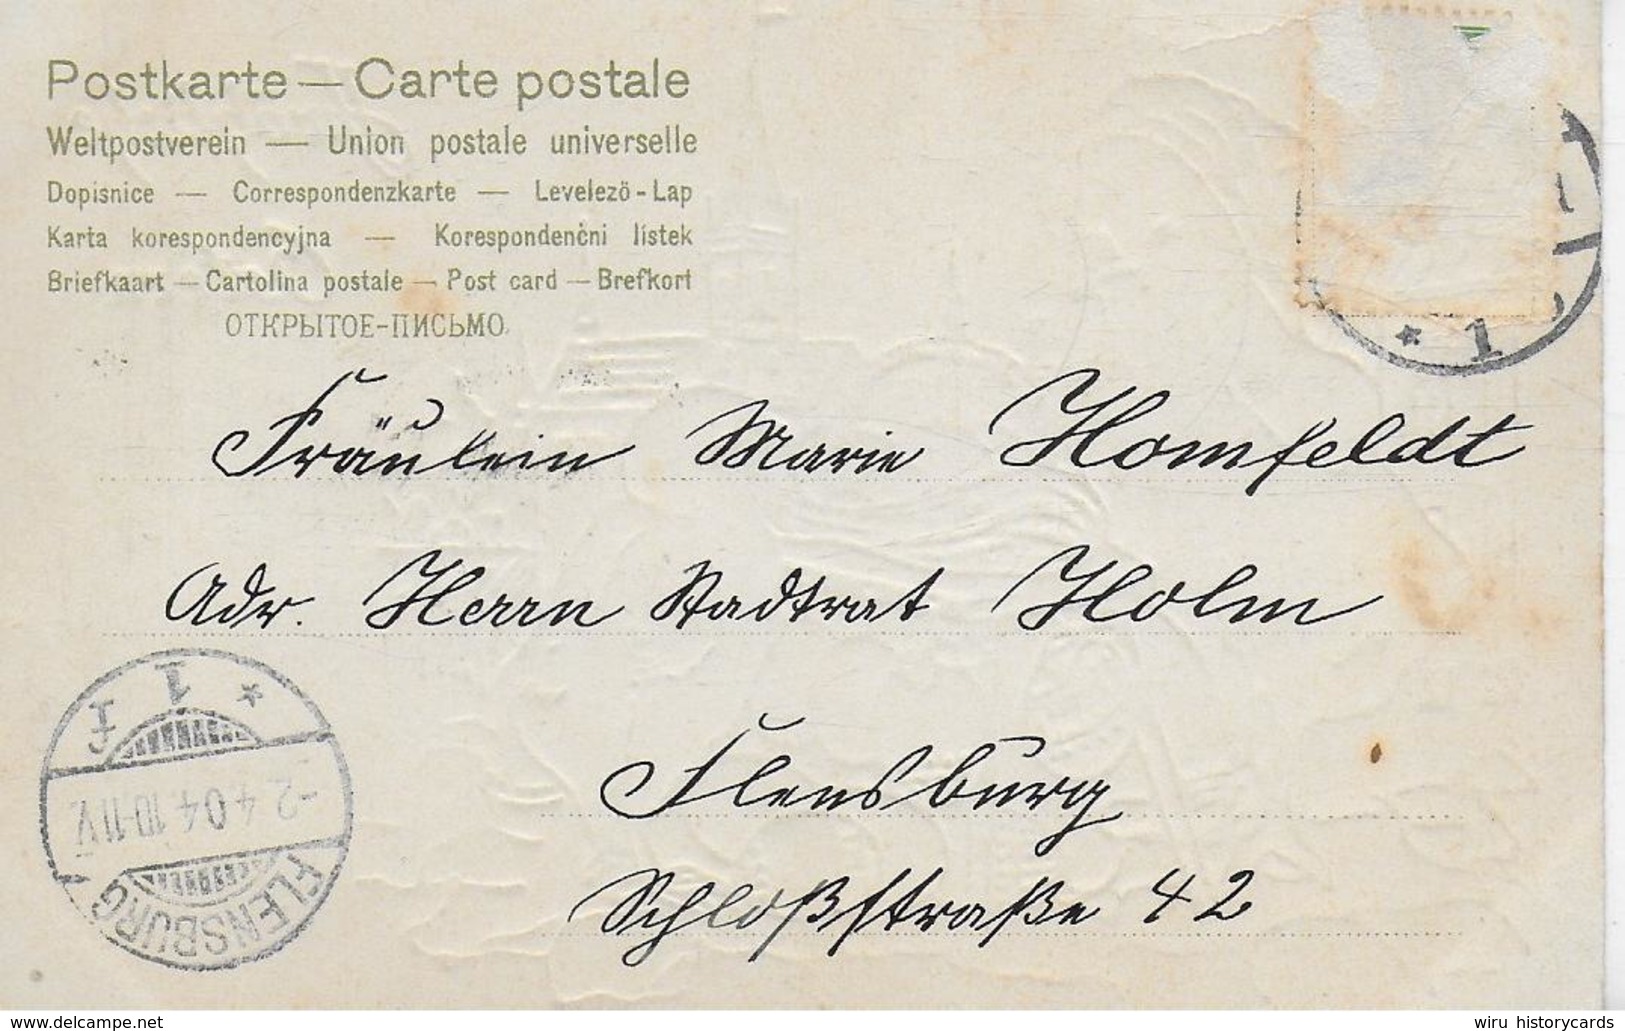 Postkarte — Carte postale
Weltpostverein — Union postale universelle
Dopisnice — Correspondenzkarte — Levelezö-Lap
Karta korespondencyjna — Korespondenčni listek
Briefkaart — Cartolina postale — Post card — Brefkort
ОТКРЫТОЕ-ПИСЬМО.
* 1
Fräulein Marie Homfeldt
Adr. Herrn Stadtrat Holm
Flensburg
Schloßstraße 42
FLENSBURG
-2.4.04.10-11V.
* 1 F
wiru historycards
www.delcampe.net